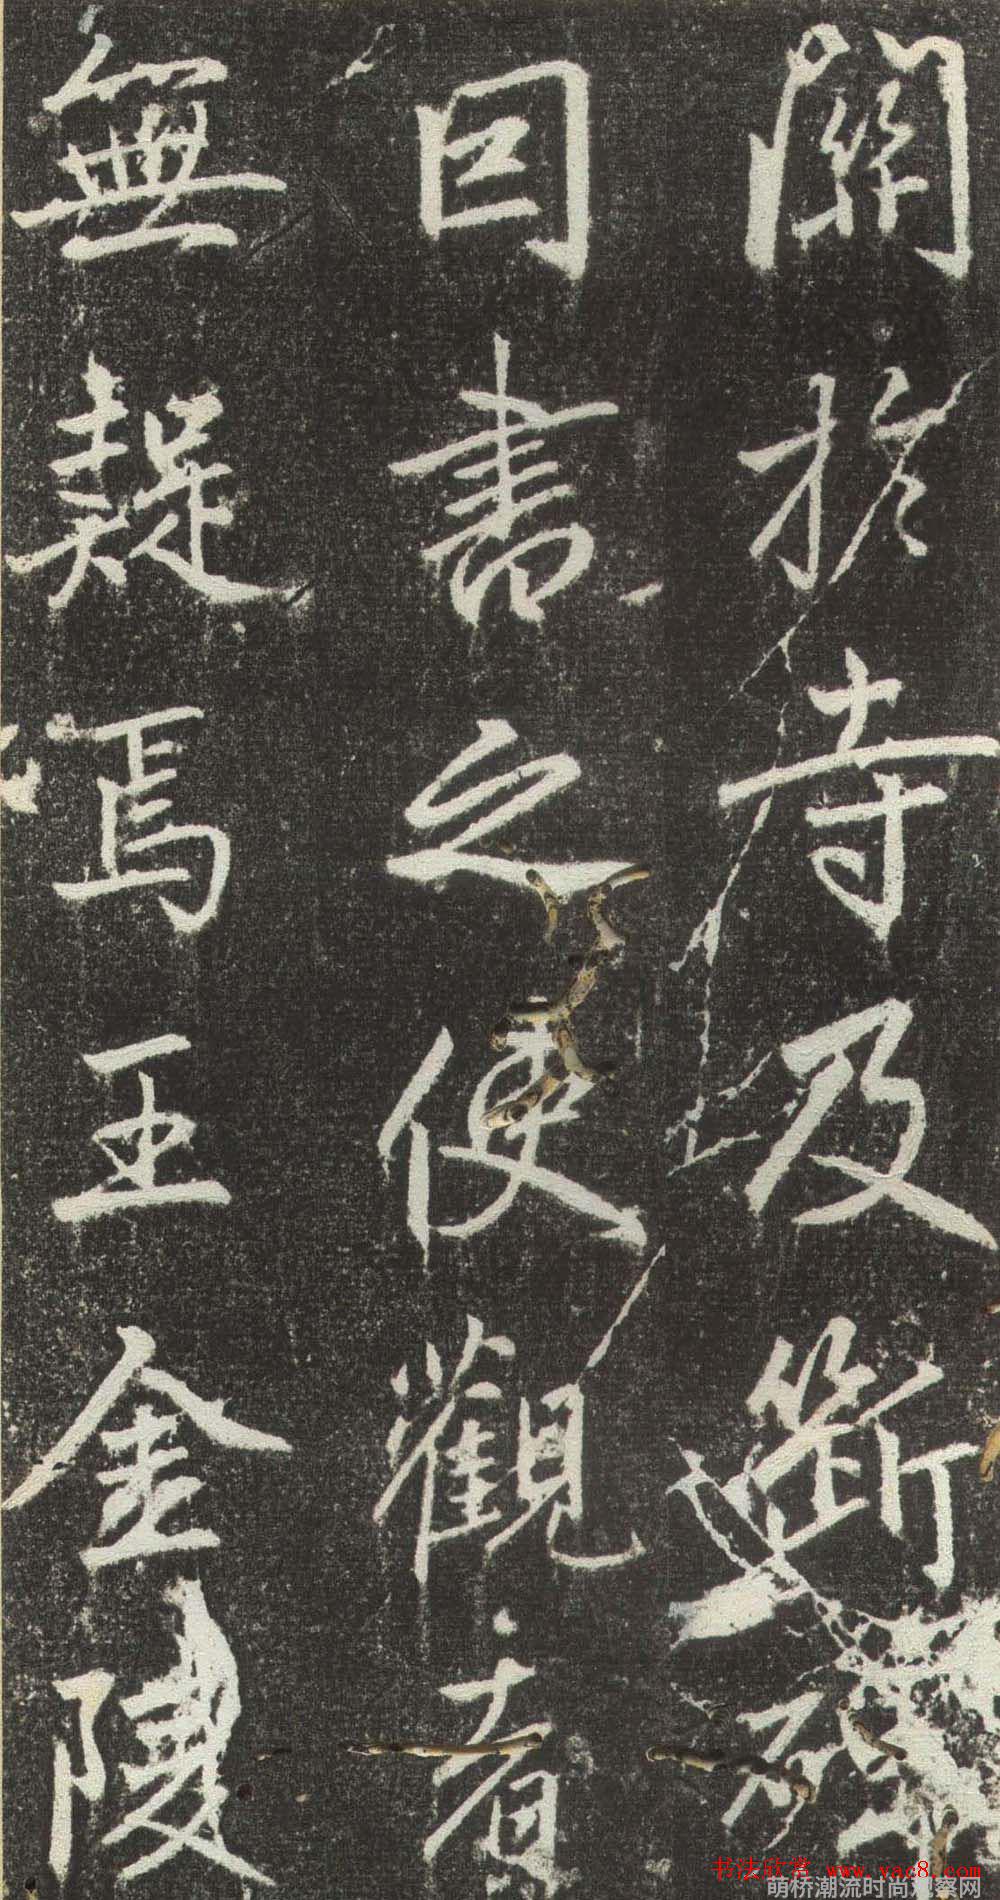 關於寺及斷
因書之使觀者
無疑焉王金陵
书法欣赏 www.yac8.com
萌桥潮流时尚观察网